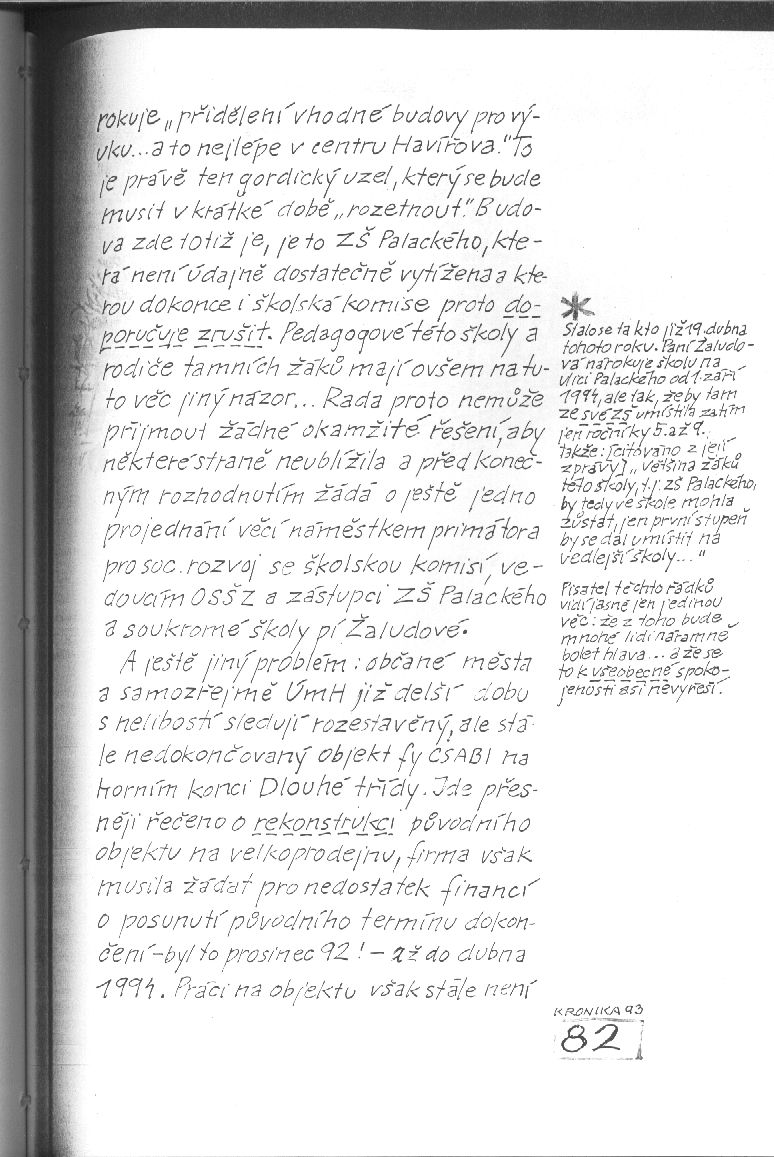 rokuje „přidělení vhodné budovy pro vý-
uku...a to nejlépe v centru Havířova." To
je právě ten gordický uzel, který se bude
musit v krátké době „rozetnout". Budo-
va zde totiž je, je to ZŠ Palackého, kte-
rá není údajně dostatečně vytížena a kte-
rou dokonce i školská komise proto do-
poručuje zrušit. Pedagogové této školy a
rodiče tamních žáků mají ovšem na tu-
to věc jiný názor... Rada proto nemůže
přijmout žádné okamžité řešení, aby
některé straně neublížila a před koneč-
ným rozhodnutím žádá o ještě jedno
projednání věcí náměstkem primátora
pro soc. rozvoj se školskou komisí, ve-
doucím OSŠZ a zástupci ZŠ Palackého
a soukromé školy pí Žaludové.
A ještě jiný problém: občané města
a samozřejmě ÚmH již delší dobu
s nelibostí sledují rozestavěný, ale stá-
le nedokončovaný objekt fy CSABI na
horním konci Dlouhé třídy. Jde přes-
něji řečeno o rekonstrukci původního
objektu na velkoprodejnu, firma však
musila žádat pro nedostatek financí
o posunutí původního termínu dokon-
čení – byl to prosinec 92! – až do dubna
1994. Práci na objektu však stále není
*
Stalo se takto již 19. dubna
tohoto roku. Paní Žaludo-
vá nárokuje školu na
ulici Palackého od 1. září
1994, ale tak, že by tam
ze své ZŠ umístila zatím
jen ročníky 5. až 9.,
takže: [citováno z její
zprávy] „většina žáků
této školy, t.j. ZŠ Palackého,
by tedy ve škole mohla
zůstat, jen první stupeň
by se dal umístit na
vedlejší školy..."
Pisatel těchto řádků
vidí jasně jen jedinou
věc: že z toho bude
mnohé lidi náramně
bolet hlava... a že se
to k všeobecné spoko-
jenosti asi nevyřeší.
KRONIKA 93
82